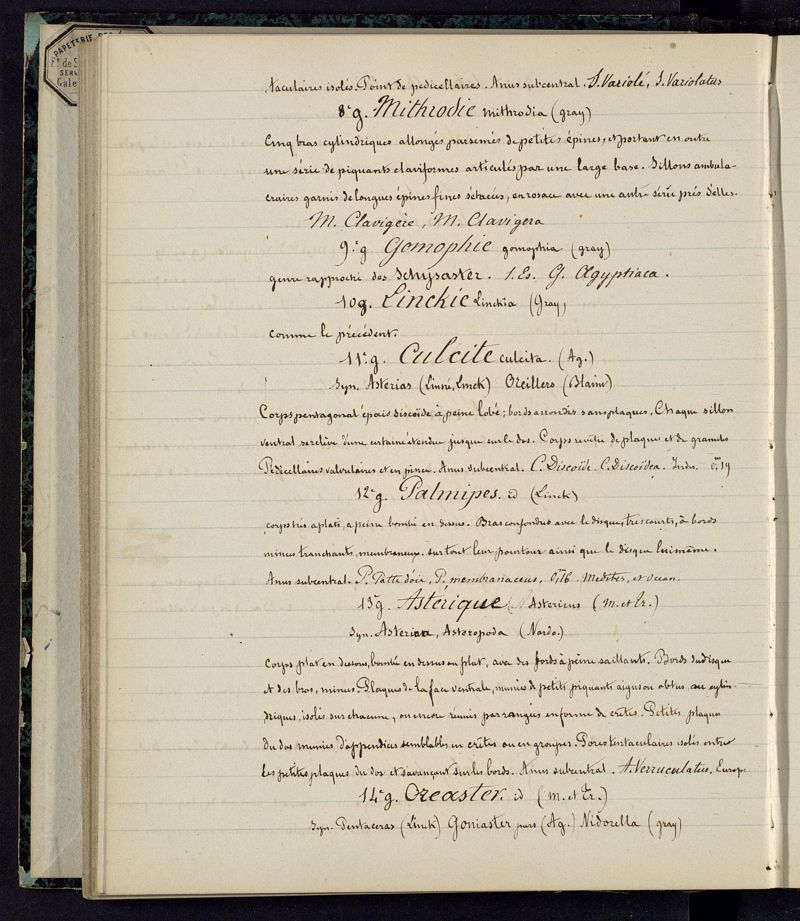 PAPETERIE
taculaires isolés. Point de pedicellaires. Anus subcentral. S. Variolé, S. Variolatus
8e g. Mithrodie mithrodia (gray)
Cinq bras cylindriques allongés parsemés de petites épines, et portant en outre
une série de piquants claviformes articulés par une large base. Sillons ambula-
craires garnis de longues épines fines sétacées, en rosace avec une autre série près d'elles.
M. Clavigère, M. Clavigera
9e g Gomophie gomophia (gray)
genre rapproché des Schysaster. 1. Es. G. Ægyptiaca.
10 g. Linckie Linckia (Gray)
comme le précédent.
11e g. Culcite culcita. (Ag.)
Syn. Asterias (Linné, Linck) Oreillers (Blainv)
Corps pentagonal épais discoïde à peine lobé; bords arrondis sans plaques. Chaque sillon
ventral se relève d'une certaine étendue jusque sur le dos. Corps revêtu de plaques et de granules
Pédicellaires valvulaires et en pince. Anus subcentral. C. Discoïde. C. Discoïdea. Indes. 0m19
12e g. Palmipes. id (Linck)
corps très aplati, a peine bombé en dessus. Bras confondus avec le disque, très courts, à bords
minces tranchants, membraneux. surtout leur pourtour ainsi que le disque lui même.
Anus subcentral. P. Patte d'oie, P. membranaceus, 0m16. Medster, et Ocean.
13e g. Asterique Astericus (M. et Tr.)
Syn. Asterina, Asteropoda (Nardo.)
Corps plat en dessous, bombé en dessus ou plat, avec des bords à peine saillants. Bords du disque
et des bras, minces. Plaques de la face ventrale, munies de petits piquants aigus ou obtus ou cylin-
driques, isolés sur chacune, ou encore réunis par rangées en forme de crêtes. Petites plaques
du dos munies d'appendices semblables en crêtes ou en groupes. Pores tentaculaires isolés entre
les petites plaques du dos et s'avançant sur les bords. Anus subcentral. A. Verruculatus, Europe
14e g. Oreaster. id (M. et Tr.)
Syn. Pentaceras (Linck) Goniaster pars (Ag.) Nidorella (gray)